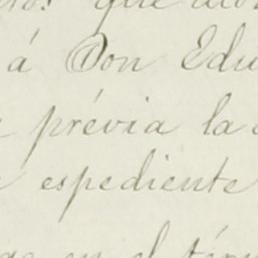 que
á Don Edu
prévia la
espediente
en el térm